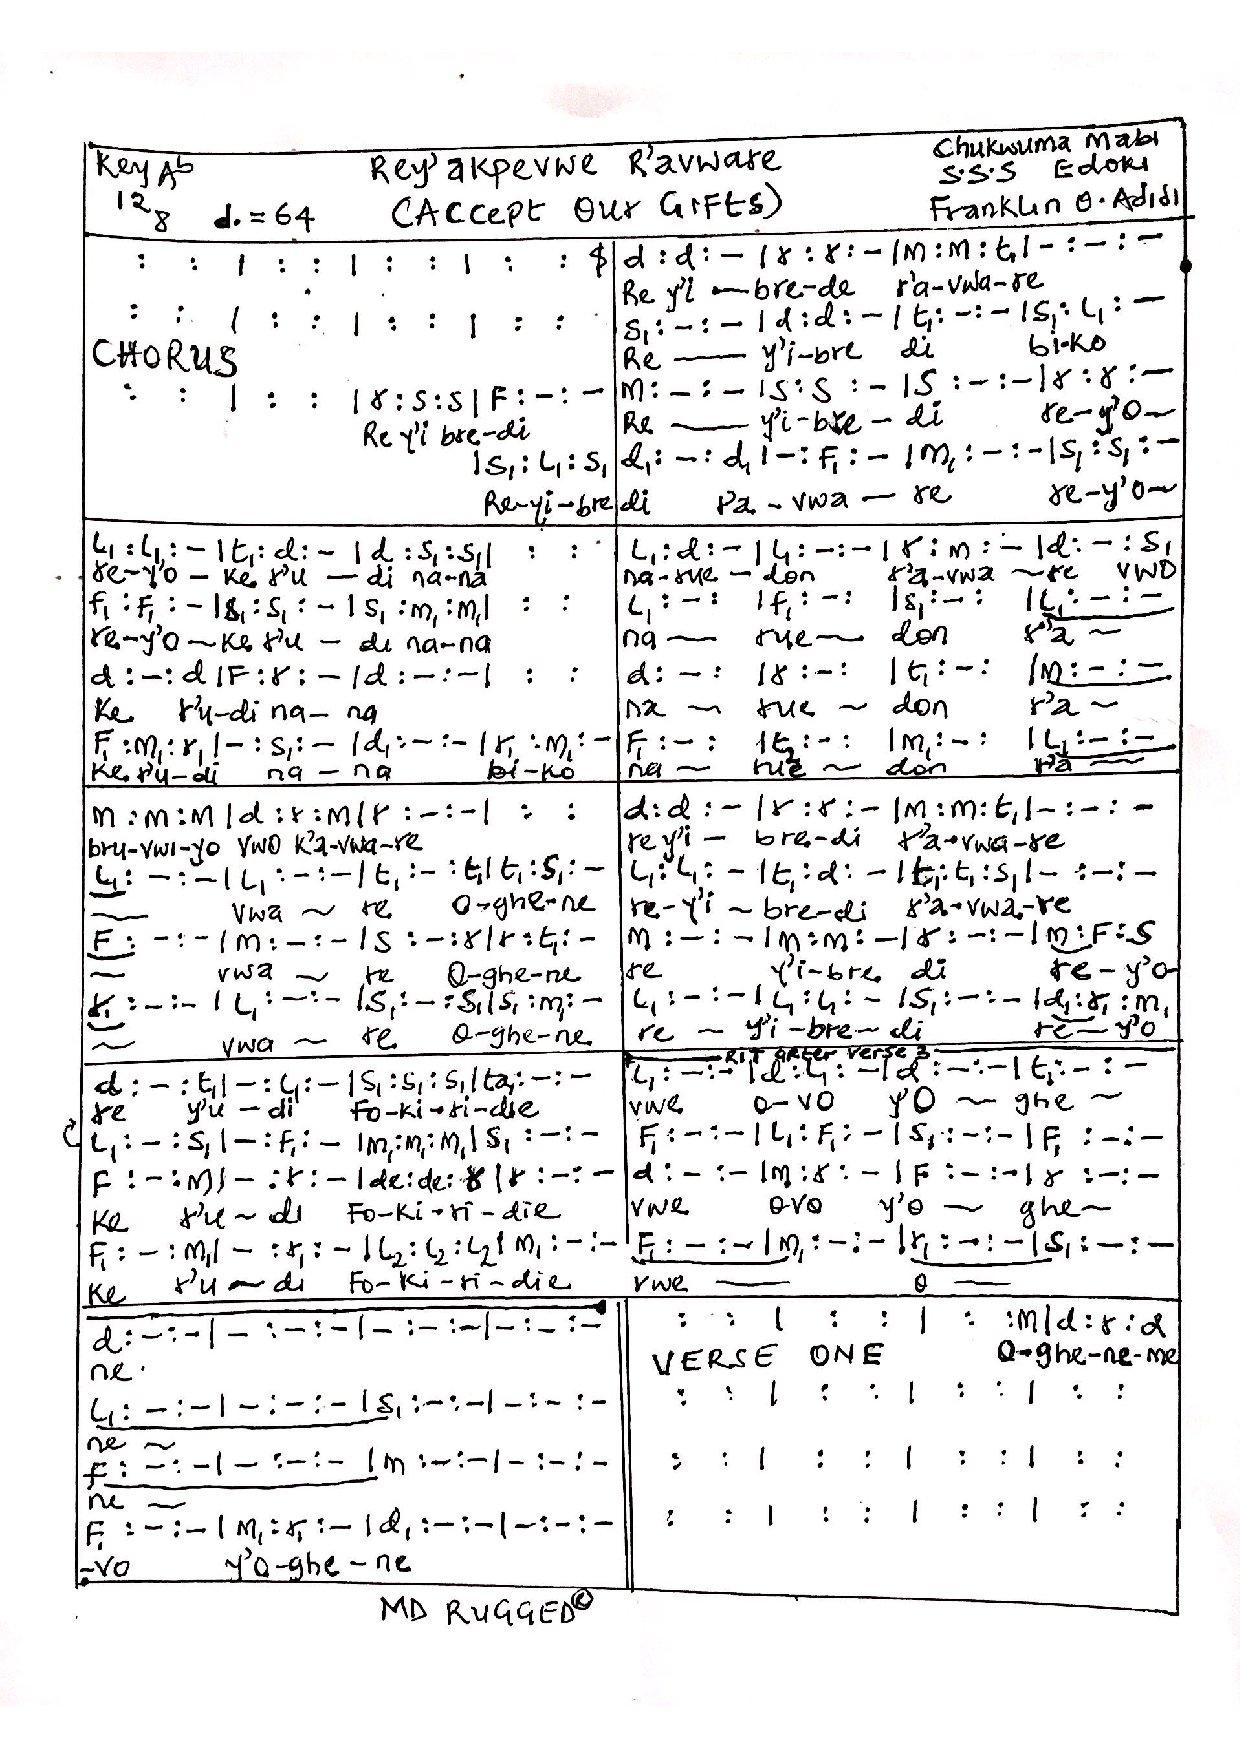 Key Ab
12/8 d. = 64
Rey'akpevwe R'avware
(Accept Our Gifts)
Chukwuma Mabi
S.S.S Edoki
Franklin O. Adidi
: : | : : | : : | : : $
: : | : : | : : | : :
CHORUS
: : | : : | r : s : s | F : - : -
Re y'i bre-di
| S₁ : L₁ : S₁
Re-yi-bre
d : d : - | r : r : - | m : m : t₁ | - : - : -
Re y'i - bre-de r'a-vwa-re
S₁ : - : - | d : d : - | t₁ : - : - | S₁ : L₁ : -
Re — y'i-bre di bi-ko
M : - : - | S : S : - | S : - : - | r : r : -
Re — y'i-bre - di re-y'O~
d₁ : - : d₁ | - : F₁ : - | m₁ : - : - | S₁ : S₁ : -
di Pa - vwa - re re-y'O~
L₁ : L₁ : - | t₁ : d : - | d : S₁ : S₁ | : :
re-y'o - ke r'u - di na-na
f₁ : F₁ : - | S₁ : S₁ : - | S₁ : m₁ : m₁ | : :
re-y'O ~ Ke r'u - di na-na
d : - : d | F : r : - | d : - : - | : :
Ke r'u-di na-na
F₁ : m₁ : r₁ | - : S₁ : - | d₁ : - : - | r₁ : m₁ : -
Ke r'u-di na-na bi-ko
L₁ : d : - | L₁ : - : - | r : m : - | d : - : S₁
na-rue - don r'a-vwa ~ re vwo
L₁ : - : | f₁ : - : | S₁ : - : | L₁ : - : -
na — rue ~ don r'a ~
d : - : | r : - : | t₁ : - : | m : - : -
na ~ rue ~ don r'a ~
F₁ : - : | t₂ : - : | m₁ : - : | L₁ : - : -
na ~ rue ~ don r'a ~
m : m : m | d : r : m | r : - : - | : :
bru-vwi-yo vwo k'a-vwa-re
L₁ : - : - | L₁ : - : - | t₁ : - : t₁ | t₁ : S₁ : -
~ vwa ~ re O-ghe-ne
F : - : - | m : - : - | S : - : r | r : t₁ : -
~ vwa ~ re O-ghe-ne
r₁ : - : - | L₁ : - : - | S₁ : - : S₁ | S₁ : m₁ : -
~ vwa ~ re O-ghe-ne
d : d : - | r : r : - | m : m : t₁ | - : - : -
re y'i - bre-di r'a-vwa-re
L₁ : L₁ : - | t₁ : d : - | t₁ : t₁ : S₁ | - : - : -
re-y'i ~ bre-di r'a-vwa-re
m : - : - | m : m : - | r : - : - | m : F : S
re y'i-bre di re-y'o-
L₁ : - : - | L₁ : L₁ : - | S₁ : - : - | d₁ : r₁ : m₁
re ~ y'i-bre ~ di re-y'o
d : - : t₁ | - : L₁ : - | S₁ : S₁ : S₁ | ta₁ : - : -
re y'u - di Fo-ki-ri-die
L₁ : - : S₁ | - : F₁ : - | m₁ : m₁ : m₁ | S₁ : - : -
F : - : M | - : r : - | de : de : r | r : - : -
Ke r'u ~ di Fo-ki-ri-die
F₁ : - : m₁ | - : r₁ : - | L₂ : L₂ : L₂ | m₁ : - : -
Ke r'u ~ di Fo-ki-ri-die
RIT after verse 3
L₁ : - : - | d : L₁ : - | d : - : - | t₁ : - : -
vwe o-vo y'O ~ ghe ~
F₁ : - : - | L₁ : F₁ : - | S₁ : - : - | F₁ : - : -
d : - : - | m : r : - | F : - : - | r : - : -
vwe ovo y'o ~ ghe ~
F₁ : - : - | m₁ : - : - | r₁ : - : - | S₁ : - : -
vwe — o —
d : - : - | - : - : - | - : - : - | - : - : -
ne.
L₁ : - : - | - : - : - | S₁ : - : - | - : - : -
ne ~
f : - : - | - : - : - | m : - : - | - : - : -
ne ~
F₁ : - : - | m₁ : r₁ : - | d₁ : - : - | - : - : -
-vo y'O-ghe-ne
: : | : : | : : m | d : r : d
VERSE ONE O-ghe-ne-me
: : | : : | : : | : :
: : | : : | : : | : :
: : | : : | : : | : :
MD RUGGED©